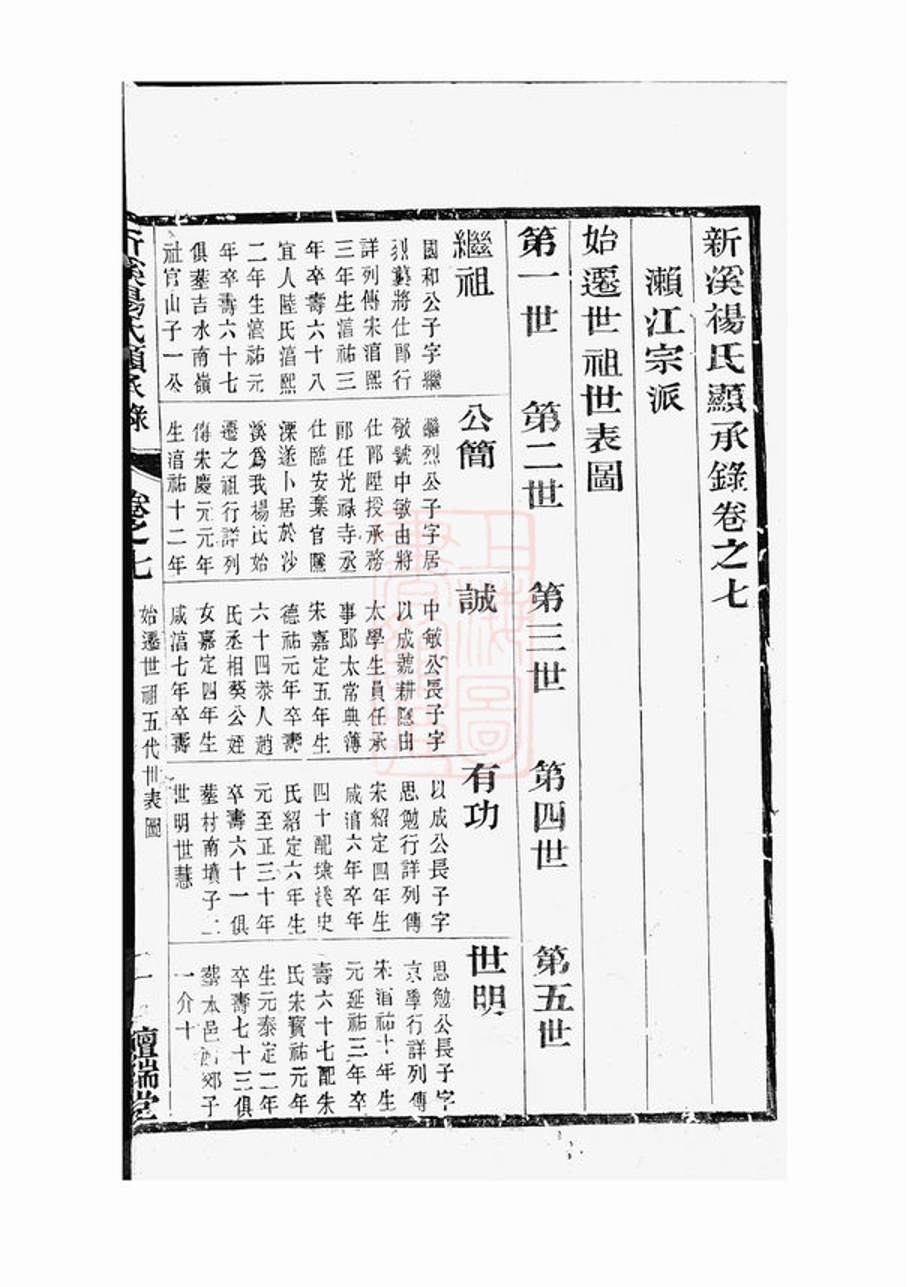 新溪楊氏顯承錄卷之七
瀨江宗派
始遷世祖世表圖
第一世
第二世
第三世
第四世
第五世
繼祖
國和公子字繼
烈藝將仕郎行
詳列傳宋淳熙
三年生淳祐三
年卒壽六十八
宜人陸氏淳熙
二年生淳祐元
年卒壽六十七
俱葬吉水南嶺
社官山子一公
公簡
繼烈公子字居
敬號中敏由將
仕郎陞授承務
郎任光祿寺丞
仕臨安棄官隱
溧遂卜居於沙
溪爲我楊氏始
遷之祖行詳列
傳宋慶元元年
生淳祐十二年
誠
中敏公長子字
以成號耕隱由
太學生員任承
事郎太常典薄
宋嘉定五年生
德祐元年卒壽
六十四恭人趙
氏丞相葵公姪
女嘉定四年生
咸淳七年卒壽
有功
以成公長子字
思勉行詳列傳
宋紹定四年生
咸淳六年卒年
四十配埭溪史
氏紹定六年生
元至正三十年
卒壽六十一俱
葬村南墳子二
世明世慧
世明
思勉公長子字
京學行詳列傳
宋淳祐十年生
元延祐三年卒
壽六十七配朱
氏宋寶祐元年
生元泰定二年
卒壽七十三俱
葬本邑西郊子
一介十
新溪楊氏顯承錄
卷之七
始遷世祖五代世表圖
二